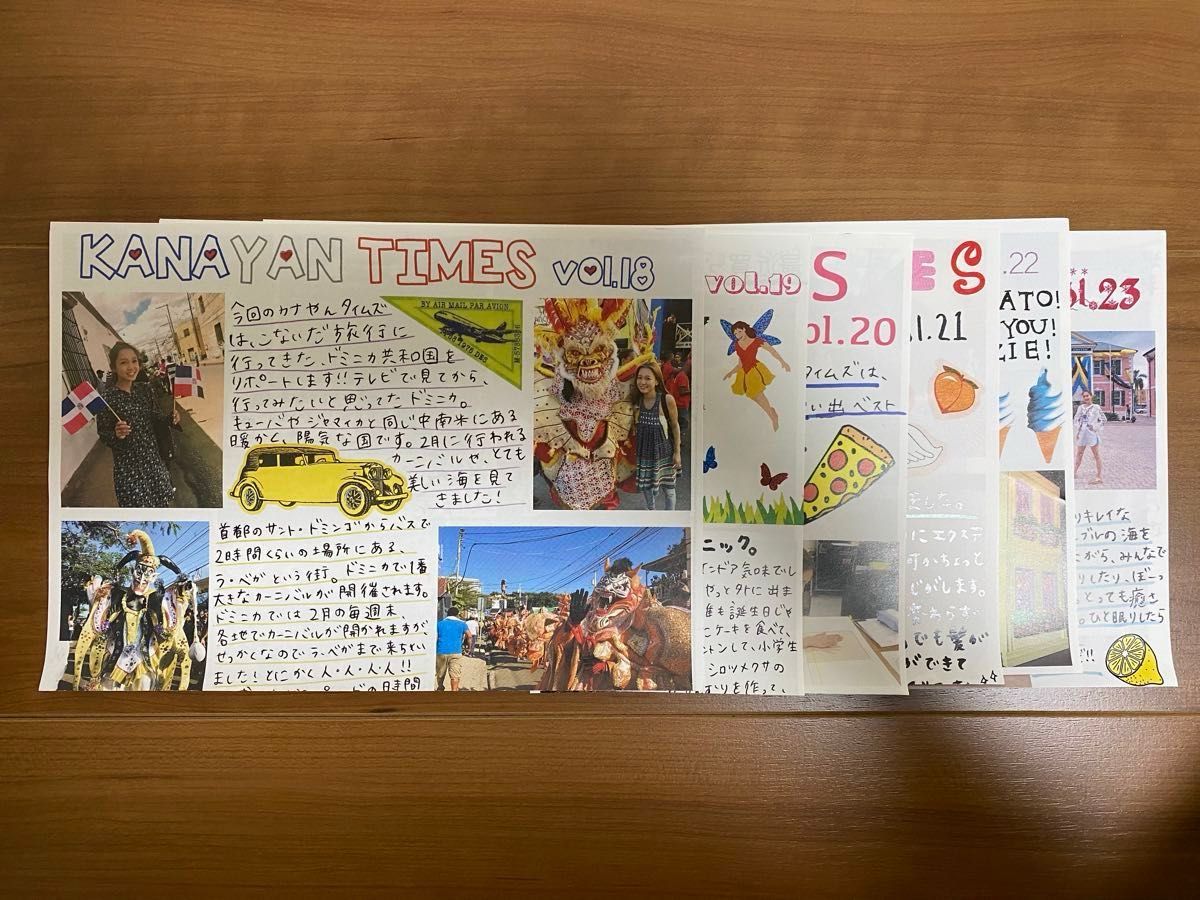 KANAYAN TIMES vol.18
今回のカナやんタイムズ
は、こないだ旅行に
行ってきた、ドミニカ共和国を
リポートします!!テレビで見てから、
行ってみたいと思ってたドミニカ。
キューバやジャマイカと同じ中南米にある
暖かく、陽気な国です。2月に行われる
カーニバルや、とても
美しい海を見て
きました!
BY AIR MAIL PAR AVION
首都のサント・ドミンゴからバスで
2時間くらいの場所にある、
ラ・ベガという街。ドミニカで1番
大きなカーニバルが開催されます。
ドミニカでは2月の毎週末、
各地でカーニバルが開かれますが
せっかくなのでラ・ベガまで来ちゃい
ました!とにかく人・人・人!!
vol.19
ニック。
インドア気味でし
やっと外に出ま
誰も誕生日じゃ
ケーキを食べて、
ントンして、小学生
シロツメクサの
りを作って、
S
ol.20
タイムズは、
い出ベスト
ES
l.21
にエクステ
ずかちょっと
じがします。
でも髪が
ができて
.22
ATO!
YOU!
ZIE!
ol.23
りキレイな
ブルの海を
がら、みんなで
りしたり、ぼーっ
とっても癒さ
。ひと眠りしたら
!!